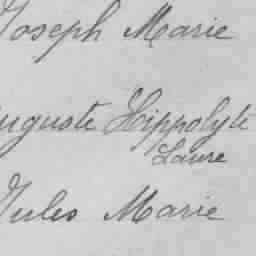 Joseph Marie
Auguste Hippolyte
Laure
Jules Marie